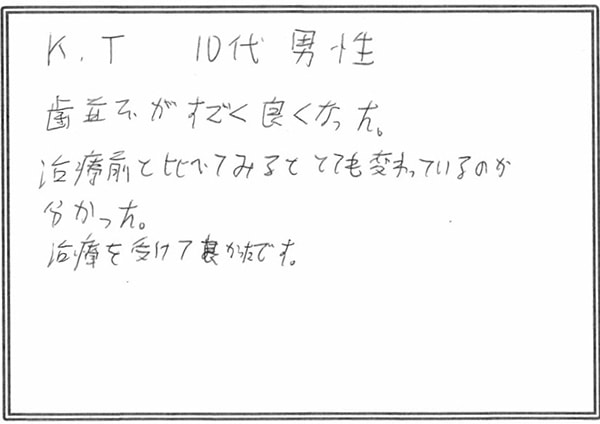 K.T 10代 男性
歯並びがすごく良くなった。
治療前と比べてみるととても変わっているのが
分かった。
治療を受けて良かったです。